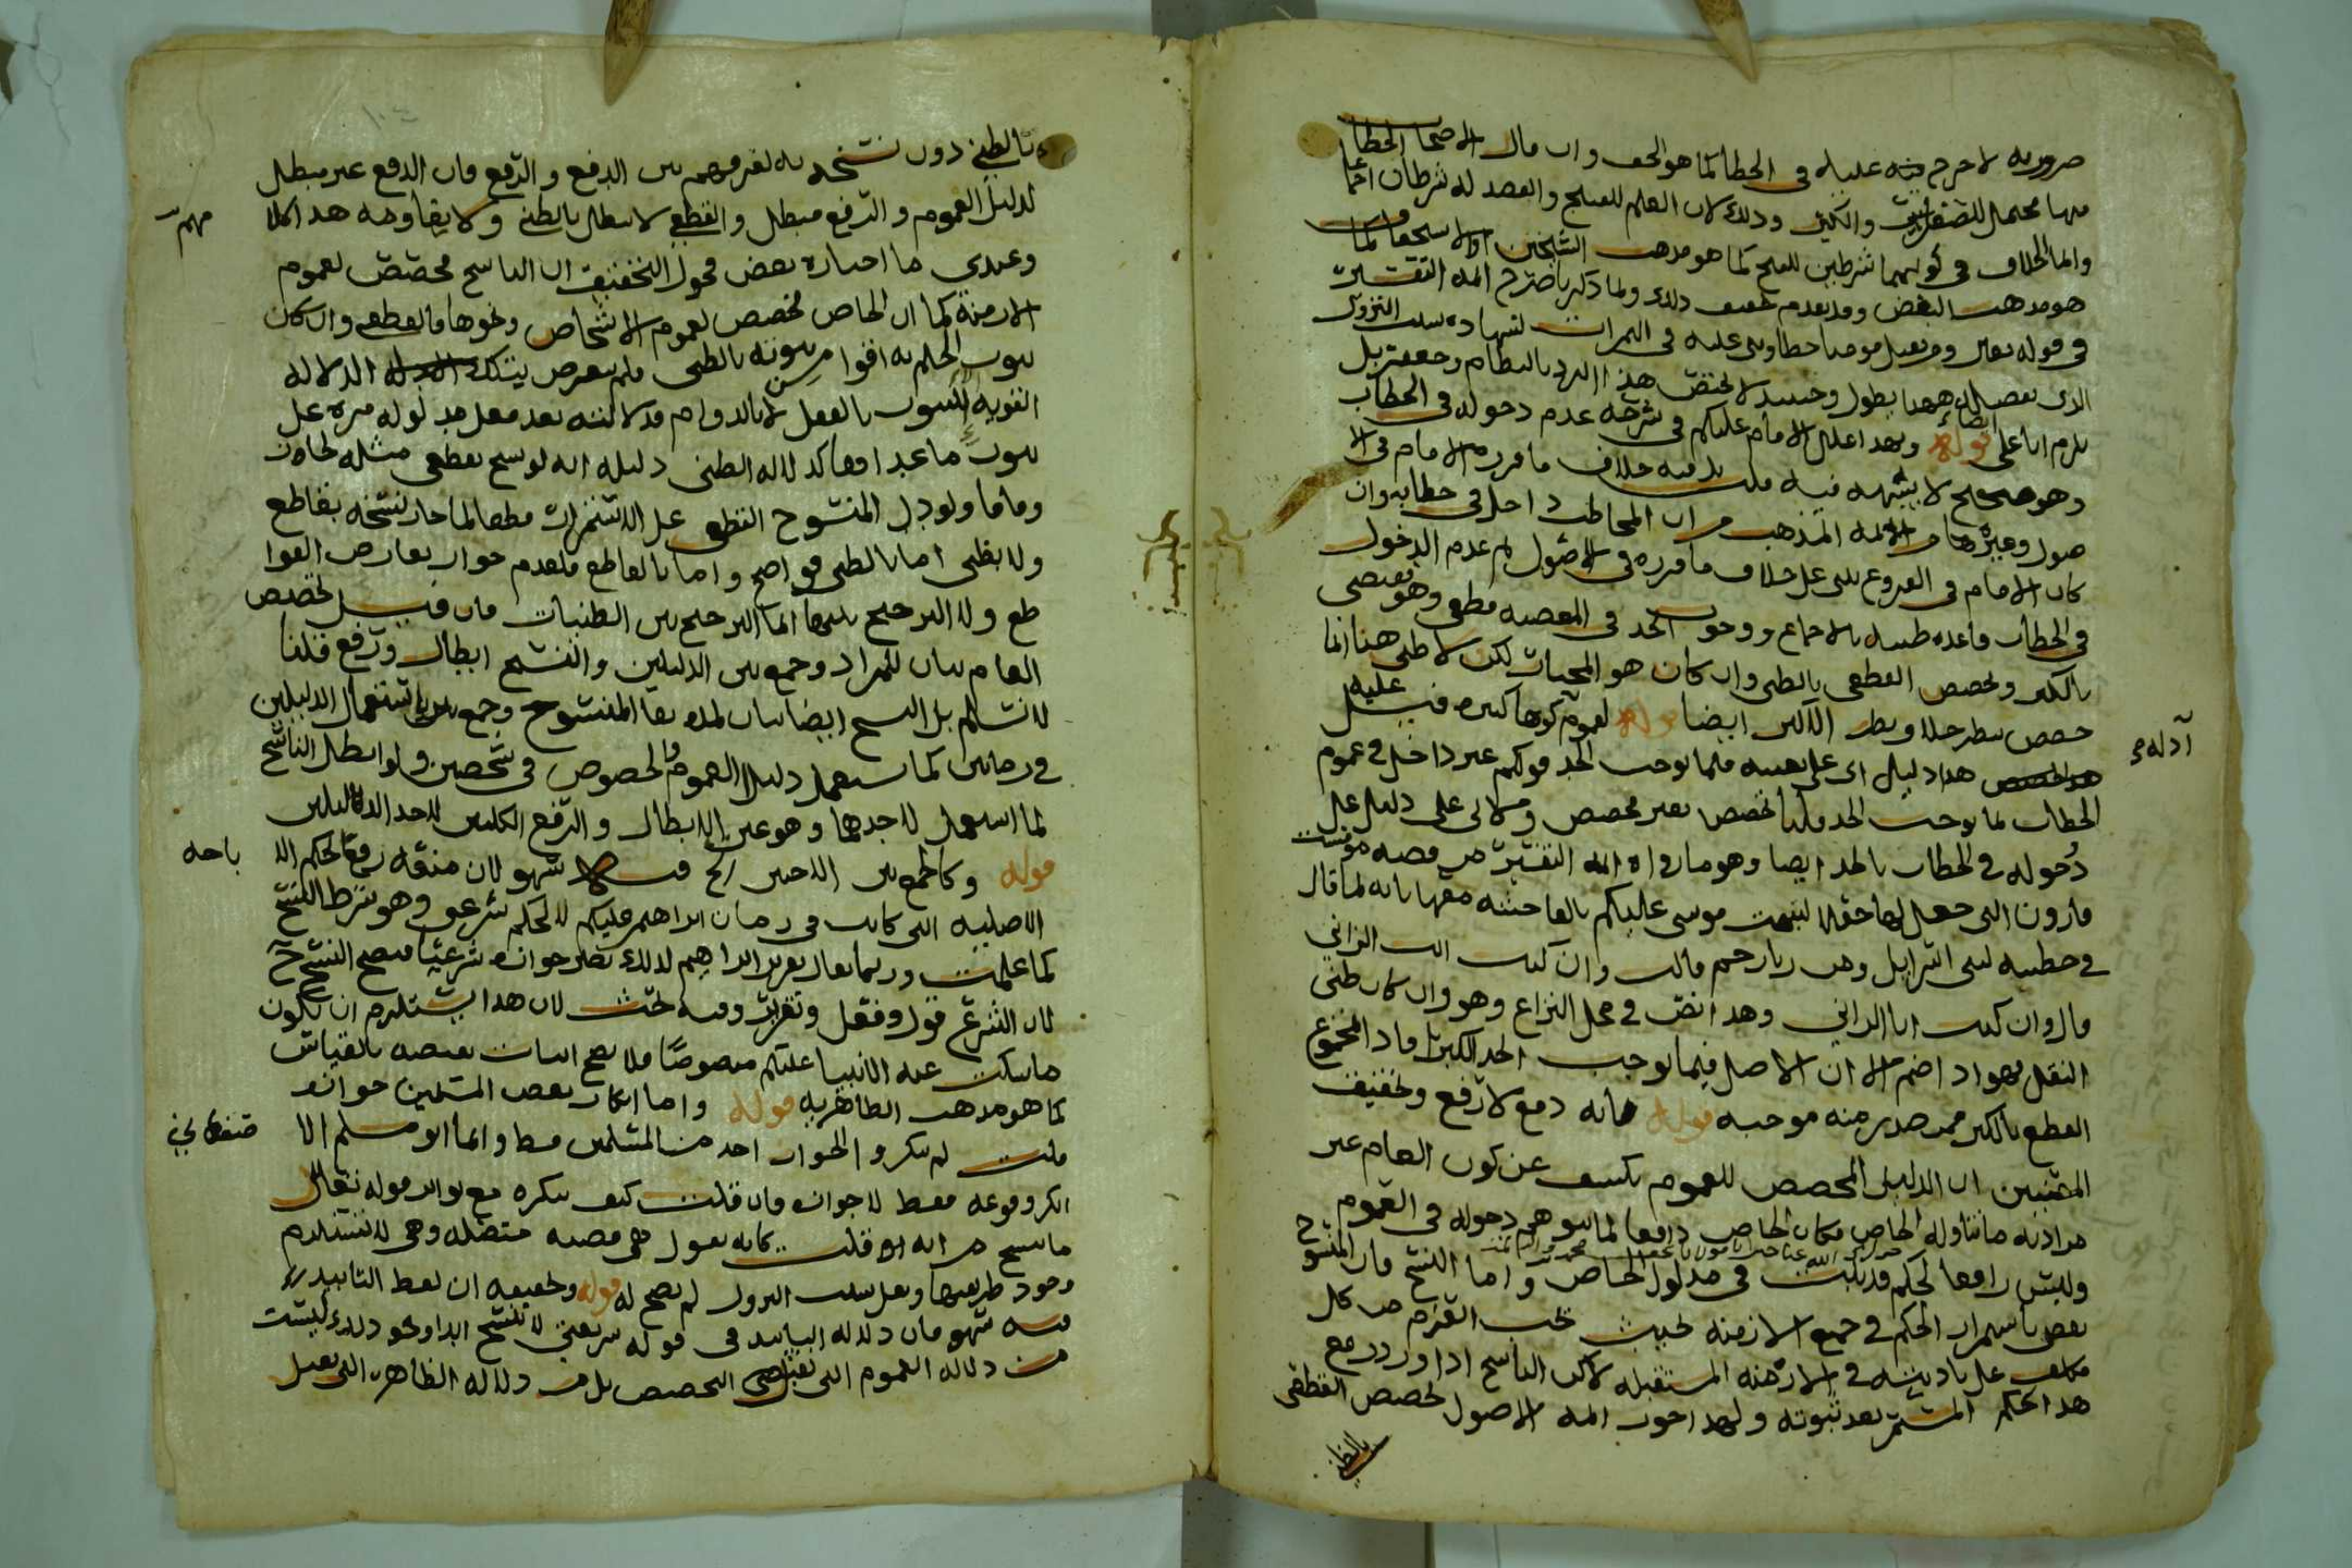 ضروريه لا حرح منه عليه في الخطا كما هو الحق وان مال الاصحا الخطا
منها محتمل للصغر والكبر وذلك لان العلم للقبح والقصد له شرطان اجما
وانما الخلاف في كونهما شرطين للقبح كما هو مذهب الشيخين او لاستحقا كما
هو مذهب البعض وقد تقدم تحقيق ذلك ولما ذكرنا صرح ائمه التفسير
في قوله تعالى ومن يقتل مومنا خطا
الذي تفصيله ههنا يطول وحينئذ لا يختص هذا الايراد بالنظام وجعفر بل
يلزم ابا علي ايضا قوله وبهذا اعلل الامام عليلم في شرحه عدم دخوله في الخطاب
وهو صحيح لا شبهه فيه قلت بل فيه خلاف ما قرره الامام في الا
صول وغيرها من الائمه المذهب من ان المخاطب داخل في خطابه وان
كان الامام في الفروع بنى على خلاف ما قرره في الاصول ثم عدم الدخول
في الخطاب قاعده ظنيه بالاجماع ووجوب الحد في المعصيه قطعي وهو يقضي
بالكبر وتخصيص القطعي بالظني وان كان هو المجيات لكن لا ظني هنا انما
خصص بنظر جلا ونظر الاكثر ايضا قوله لعموم كونها كبيره قيل عليه
هذا دليل ابي علي بعينه فلما يوجب الحد قولكم غير داخل في عموم
الخطاب لما يوجب الحد قلنا تخصيص بغير مخصص ولابي علي دليل على
دخوله في الخطاب بالحد ايضا وهو ما رواه ائمه التفسير من قصه مومست
قارون التي جعل لها جعلا لتبهت موسى عليلم بالفاحشه معها بانه لما قال
في خطبته لبني اسرايل ومن زنا رجم قالت وان كنت انت الزاني
قال وان كنت انا الزاني وهذا نص في محل النزاع وهو وان كان ظني
النقل فهو اذا ضم الى ان الاصل فيما يوجب الحد الكبر افاد المجموع
القطع بالكبر ممن صدر منه موجبه قوله فانه دفع لا رفع وتحقيق
المقتبس ان الدليل المخصص للعموم يكشف عن كون العام غير
مراد به ما تناوله الخاص فكان الخاص دافعا لما يتوهم دخوله في العموم
وليس رافعا لحكم قد ثبت في مدلول الخاص واما النسخ فان المنسوخ
يقضي باستمرار الحكم في جميع الازمنه بحيث يجب العزم من كل
مكلف على تاديته في الازمنه المستقبله لاكن الناسخ اذا ورد رفع
هذا الحكم المستمر بعد ثبوته ولهذا جوز ائمه الاصول تخصيص القطعي
بالظني
ادله
بالظني دون نسخه به لفرقهم بين الدفع والرفع فان الدفع غير مبطل
لدليل العموم والرفع مبطل والقطعي لا يبطل بالظني ولا يقاومه هذا كلا
مهم
وعندي ما اختاره بعض فحول التحقيق ان الناسخ مخصص لعموم
الازمنة كما ان الخاص مخصص لعموم الاشخاص ونحوها فالقطعي وان كان
ثبوت الحكم به اقوا من ثبوته بالظني فلم يعرض بتلك الدلاله
القويه الا لثبوت بالفعل لا بالدوام فدلالته بعد فعل مدلوله مره على
ثبوت ما عداها كدلاله الظني دليله انه لو نسخ بقطعي مثله لجاز
وفاقا ولو دل المنسوخ القطعي على الاستمرار قطعا لما جاز نسخه بقاطع
ولا بظني اما بالظني فواضح واما بالقاطع فلعدم جواز تعارض القوا
طع ولا الترجيح بينها انما الترجيح بين الظنيات فان قيل تخصيص
العام بيان للمراد وجمع بين الدليلين والنسخ ابطال ورفع قلنا
لا نسلم بل النسخ ايضا بيان لمده بقا المنسوخ وجمع بين باستعمال الدليلين
في زمانين كما يستعمل دليلا العموم والخصوص في شخصين ولو ابطل الناسخ
لما استعمل لاحدهما وهو عين الابطال والرفع الكليين لاحد الدليلين
قوله وكالجمع بين الاختين الخ قلت كلا سهو لان منعه رفعا لحكم الا
باحه
الاصليه التي كانت في زمان ابراهيم عليلم لا لحكم شرعي وهو شرط النسخ
كما علمت وربما يقال تقرير ابراهيم لذلك تصير جوازه شرعيا فيصح النسخ
لان الشرع قول وفعل وتقرير وفيه بحث لان هذا يستلزم ان يكون
ما سكت عنه الانبيا عليلم منصوصا فلا يصح اثبات نقيضه بالقياس
كما هو مذهب الظاهريه قوله واما انكار بعض المسلمين جوازه
قلت لم ينكر والجواز احد من المسلمين قط وانما ابو مسلم الا
صفهاني
انكر وقوعه فقط لا جوازه فان قلت كيف ينكره مع تواتر قوله تعالى
ما ننسخ من ايه الا قلت كانه يقول هي قضيه متصله وهي لا تستلزم
وجود طرفيها ولعل سبب النزول لم يصح له قوله وتحقيقه ان لفظ التابيد
فيه سهو فان دلاله التابيد في قوله شريعتي لا تنسخ ابدا ونحو ذلك ليست
من دلاله العموم التي تقتضي التخصيص بل من دلاله الظاهر التي تقبل